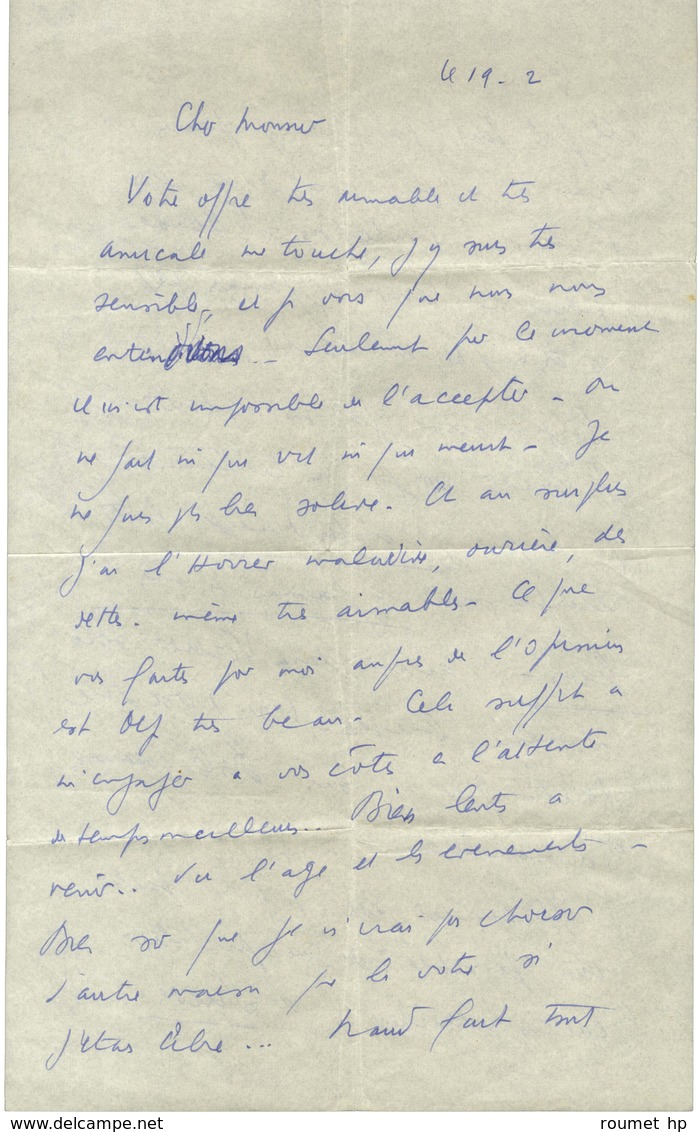 le 19 - 2
Cher Monsieur
Votre offre très aimable et très
amicale me touche, j'y suis très
sensible, et je vois que nous nous
entendons - Seulement pour le moment
il m'est impossible de l'accepter - on
ne sait ni qui vit ni qui meurt - Je
ne suis pas très solide. Et au surplus
j'ai l'horreur maladive, ouvrière, des
dettes - même très aimables - Ce que
vous faites pour moi auprès de l'Opinion
est déjà très beau - Cela suffit à
m'engager à vos côtés à l'attente
de temps meilleurs.. Bien lents à
venir.. Vu l'age et les evenements -
Bien sûr que je n'irai pas choisir
d'autre maison que la votre si
j'étais libre...            fait tout
www.delcampe.net
roumet hp